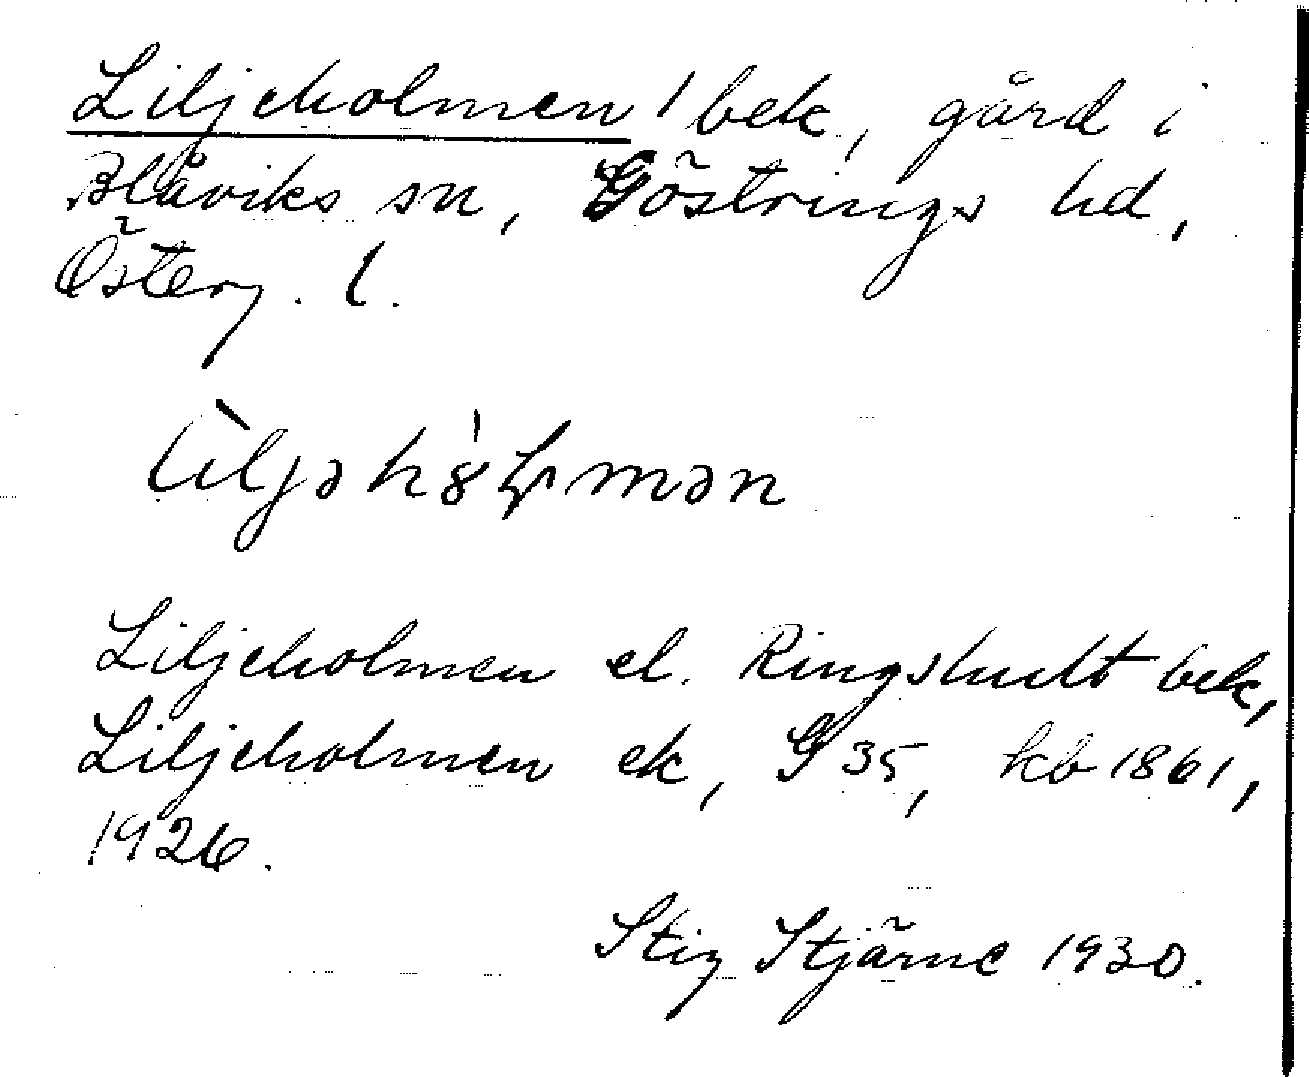 Liljeholmen 1 bek, gård i
Blåviks sn, Göstrings hd,
Österg. l.
Liljeholmen el. Ringshult bek,
Liljeholmen ek, G 35, kb 1861,
1926.
Stig Stjärne 1930.